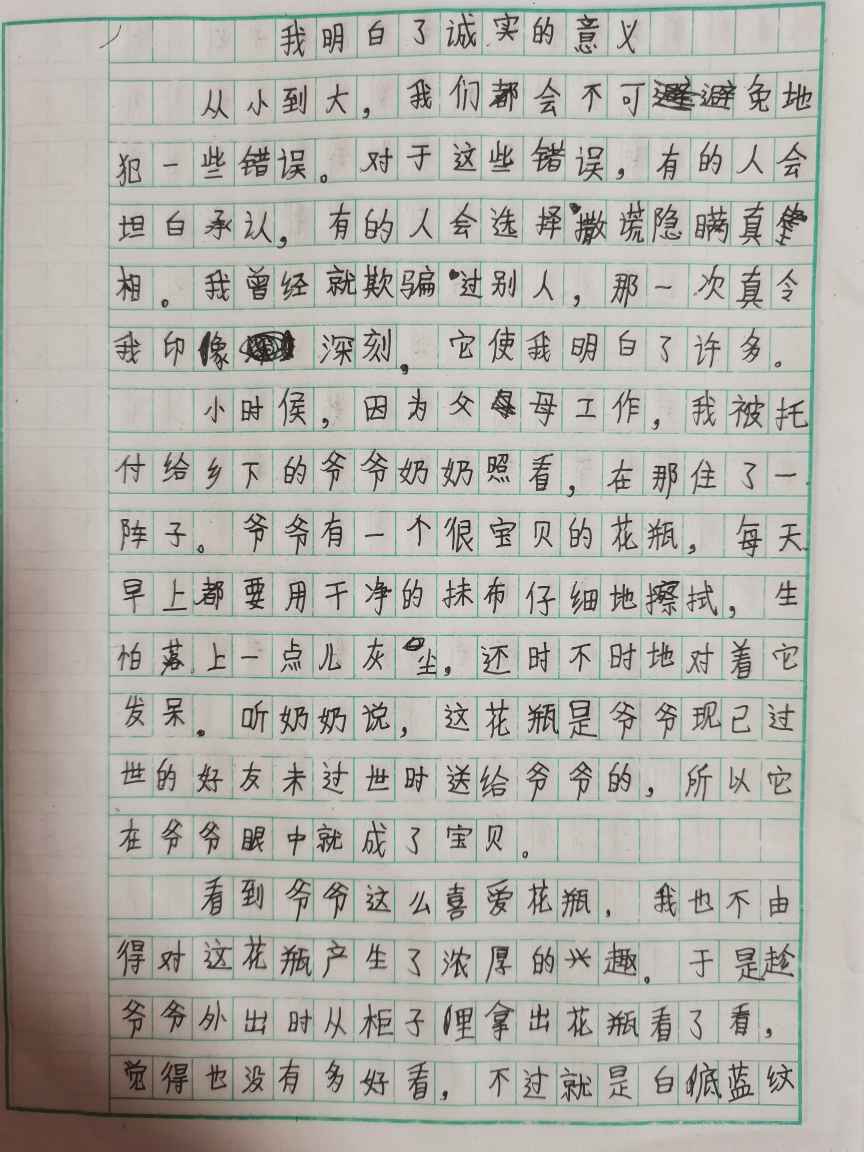 我明白了诚实的意义
从小到大，我们都会不可避免地
犯一些错误。对于这些错误，有的人会
坦白承认，有的人会选择撒谎隐瞒真
相。我曾经就欺骗过别人，那一次真令
我印像深刻，它使我明白了许多。
小时候，因为父母工作，我被托
付给乡下的爷爷奶奶照看，在那住了一
阵子。爷爷有一个很宝贝的花瓶，每天
早上都要用干净的抹布仔细地擦拭，生
怕落上一点儿灰尘，还时不时地对着它
发呆。听奶奶说，这花瓶是爷爷现已过
世的好友未过世时送给爷爷的，所以它
在爷爷眼中就成了宝贝。
看到爷爷这么喜爱花瓶，我也不由
得对这花瓶产生了浓厚的兴趣。于是趁
爷爷外出时从柜子里拿出花瓶看了看，
觉得也没有多好看，不过就是白底蓝纹